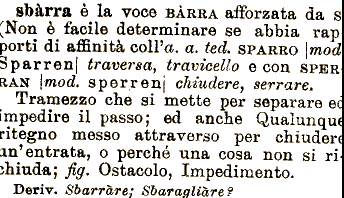 sbàrra è la voce BÀRRA afforzata da s
(Non è facile determinare se abbia rap
porti di affinità coll'a. a. ted. SPARRO |mod
Sparren| traversa, travicello e con SPER-
RAN |mod. sperren| chiudere, serrare.
Tramezzo che si mette per separare ed
impedire il passo; ed anche Qualunque
ritegno messo attraverso per chiudere
un'entrata, o perché una cosa non si ri-
chiuda; fig. Ostacolo, Impedimento.
Deriv. Sbarràre; Sbaragliàre?